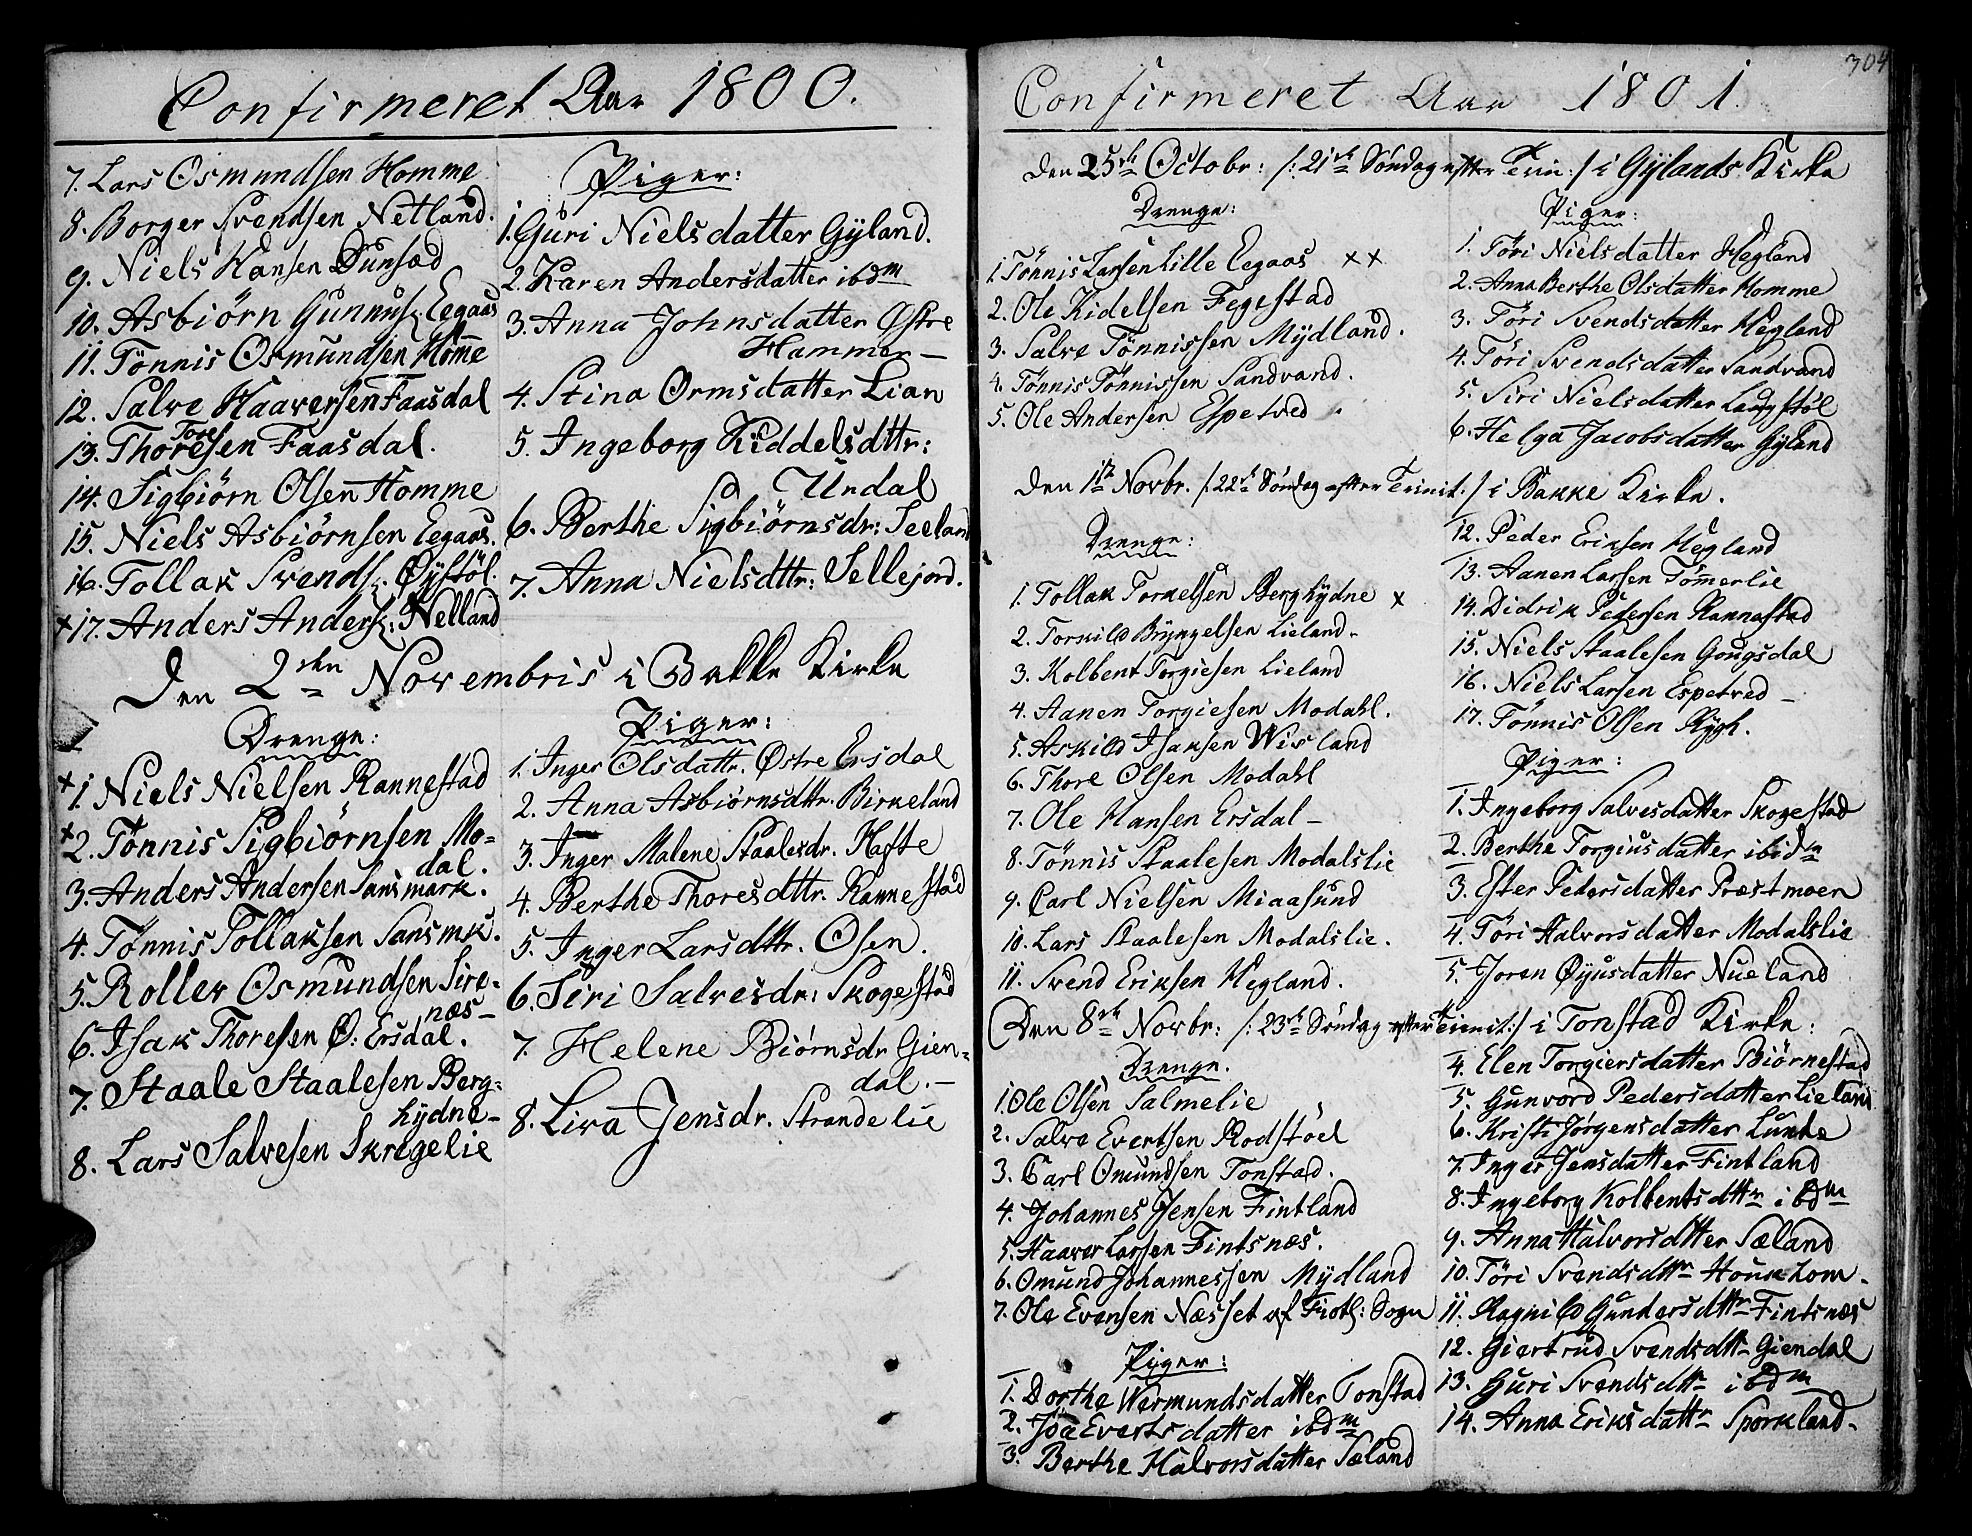 Confirmeret Aar 1800.
7. Lars Osmundsen Homme
8. Borger Svendsen Netland.
9. Niels Hansen Dunsæd
10. Asbiörn Gunnufs: Eegaas
11. Tönnis Osmundsen Hom̄e
12. Salve Haaversen Faasdal
Tore
13. Thoresen Faasdal.
14. Sigbiörn Olsen Homme
15. Niels Asbiörnsen Eegaas.
16. Tollak Svends: Øystöl.
x 17. Anders Anders: Netland
Piger:
1. Guri Nielsdatter Gyland.
2. Karen Andersdatter ibdm
3. Anna Johnsdatter Østre
Hammer —
4. Stina Ormsdatter Lian
5. Ingeborg Kiddelsdttr:
Undal
6. Berthe Sigbiörnsdr: Seeland
7. Anna Nielsdttr: Sellejord.
Den 2den Novembris i Bakke Kirke
Drenge:
x 1. Niels Nielsen Rannestad
x 2. Tönnis Sigbiörnsen Mo-
dal.
3. Anders Andersen Sansmark.
4. Tönnis Tollaksen Sansmk.
5. Roller Osmundsen Sire-
næs —
6. Isak Thoresen Ø. Ersdal.
7. Staale Staalesen Berg-
hydne —
8. Lars Salvesen Skregelie
Piger:
1. Inger Olsdattr. Østre Ersdal
2. Anna Asbiörnsdttr. Birkeland
3. Inger Malene Staalesdr. Hafte
4. Berthe Thoresdttr. Rannestad
5. Inger Larsdttr. Osen.
6. Siri Salvesdr: Skogestad
7. Helene Biörnsdr Gien-
dal. —
8. Liva Jensdr. Strandelie
304
Confirmeret Aar 1801.
Den 25de Octobr: /: 21de Söndag efter Trin: / i Gylands Kirke
Drenge:
1. Tönnis Larsen Lille Eegaas xx
2. Ole Kidelsen Fegestad
3. Salve Tönnissen Mydland.
4. Tönnis Tönnissen Sandvand.
5. Ole Andersen Espetved.
Piger:
1. Töri Nielsdatter Hegland
2. Anna Berthe Olsdatter Homme
3. Töri Svendsdatter Hegland
4. Töri Svendsdatter Sandvand
5. Siri Nielsdatter Langstöl
6. Helga Jacobsdatter Gyland
Den 1te Novbr. /: 22de Söndag efter Trinit: / i Bakke Kirke.
Drenge:
1. Tollak Torkelsen Berghydne x
2. Torkild Bryngelsen Lieland.
3. Kolbent Torgiesen Lieland
4. Aanen Torgiesen Modahl.
5. Askild Isaksen Wisland
6. Thore Olsen Modahl
7. Ole Hansen Ersdal —
8. Tönnis Staalesen Modalslie
9. Carl Nielsen Miaasund
10. Lars Staalesen Modalslie.
11. Svend Eriksen Hegland.
12. Peder Eriksen Hegland
13. Aanen Larsen Tömerlie
14. Didrik Pedersen Rannestad
15. Niels Staalesen Gougsdal
16. Niels Larsen Espetved —
17. Tönnis Olsen Rygh.
Piger:
1. Ingeborg Salvesdatter Skogestad
2. Berthe Torgiusdatter ibidm
3. Ester Pedersdatter Præstmoen
4. Töri Halvorsdatter Modalslie
5. Joren Øyusdatter Nueland
Den 8de Novbr: /: 23de Söndag efter Trinit: / i Tonstad Kirke:
Drenge.
1. Ole Olsen Salmelie
2. Salve Evertsen Rodstöel
3. Carl Omundsen Tonstad.
4. Johannes Jensen Fintland
5. Haaver Larsen Fintsnæs.
6. Omund Johannessen Mydland
7. Ole Evensen Næsset af Fiotl: Sogn
Piger:
1. Dorthe Wermundsdatter Tonstad
2. Joa Evertsdatter ibdm
3. Berthe Halvorsdatter Sæland
4. Elen Torgiersdatter Biörnestad
5. Gunvord Pedersdatter Lieland
6. Kristi Jörgensdatter Lunde
7. Inger Jensdatter Fintland
8. Ingeborg Kolbentsdttr ibdm
9. Anna Halvorsdtter Sæland
10. Töri Svendsdttr Houkhom.
11. Ragnild Gundersdttr Fintsnæs
12. Giertrud Svendsdttr Giendal
13. Guri Svendsdttr ibdm
14. Anna Eriksdattr Sporkland.